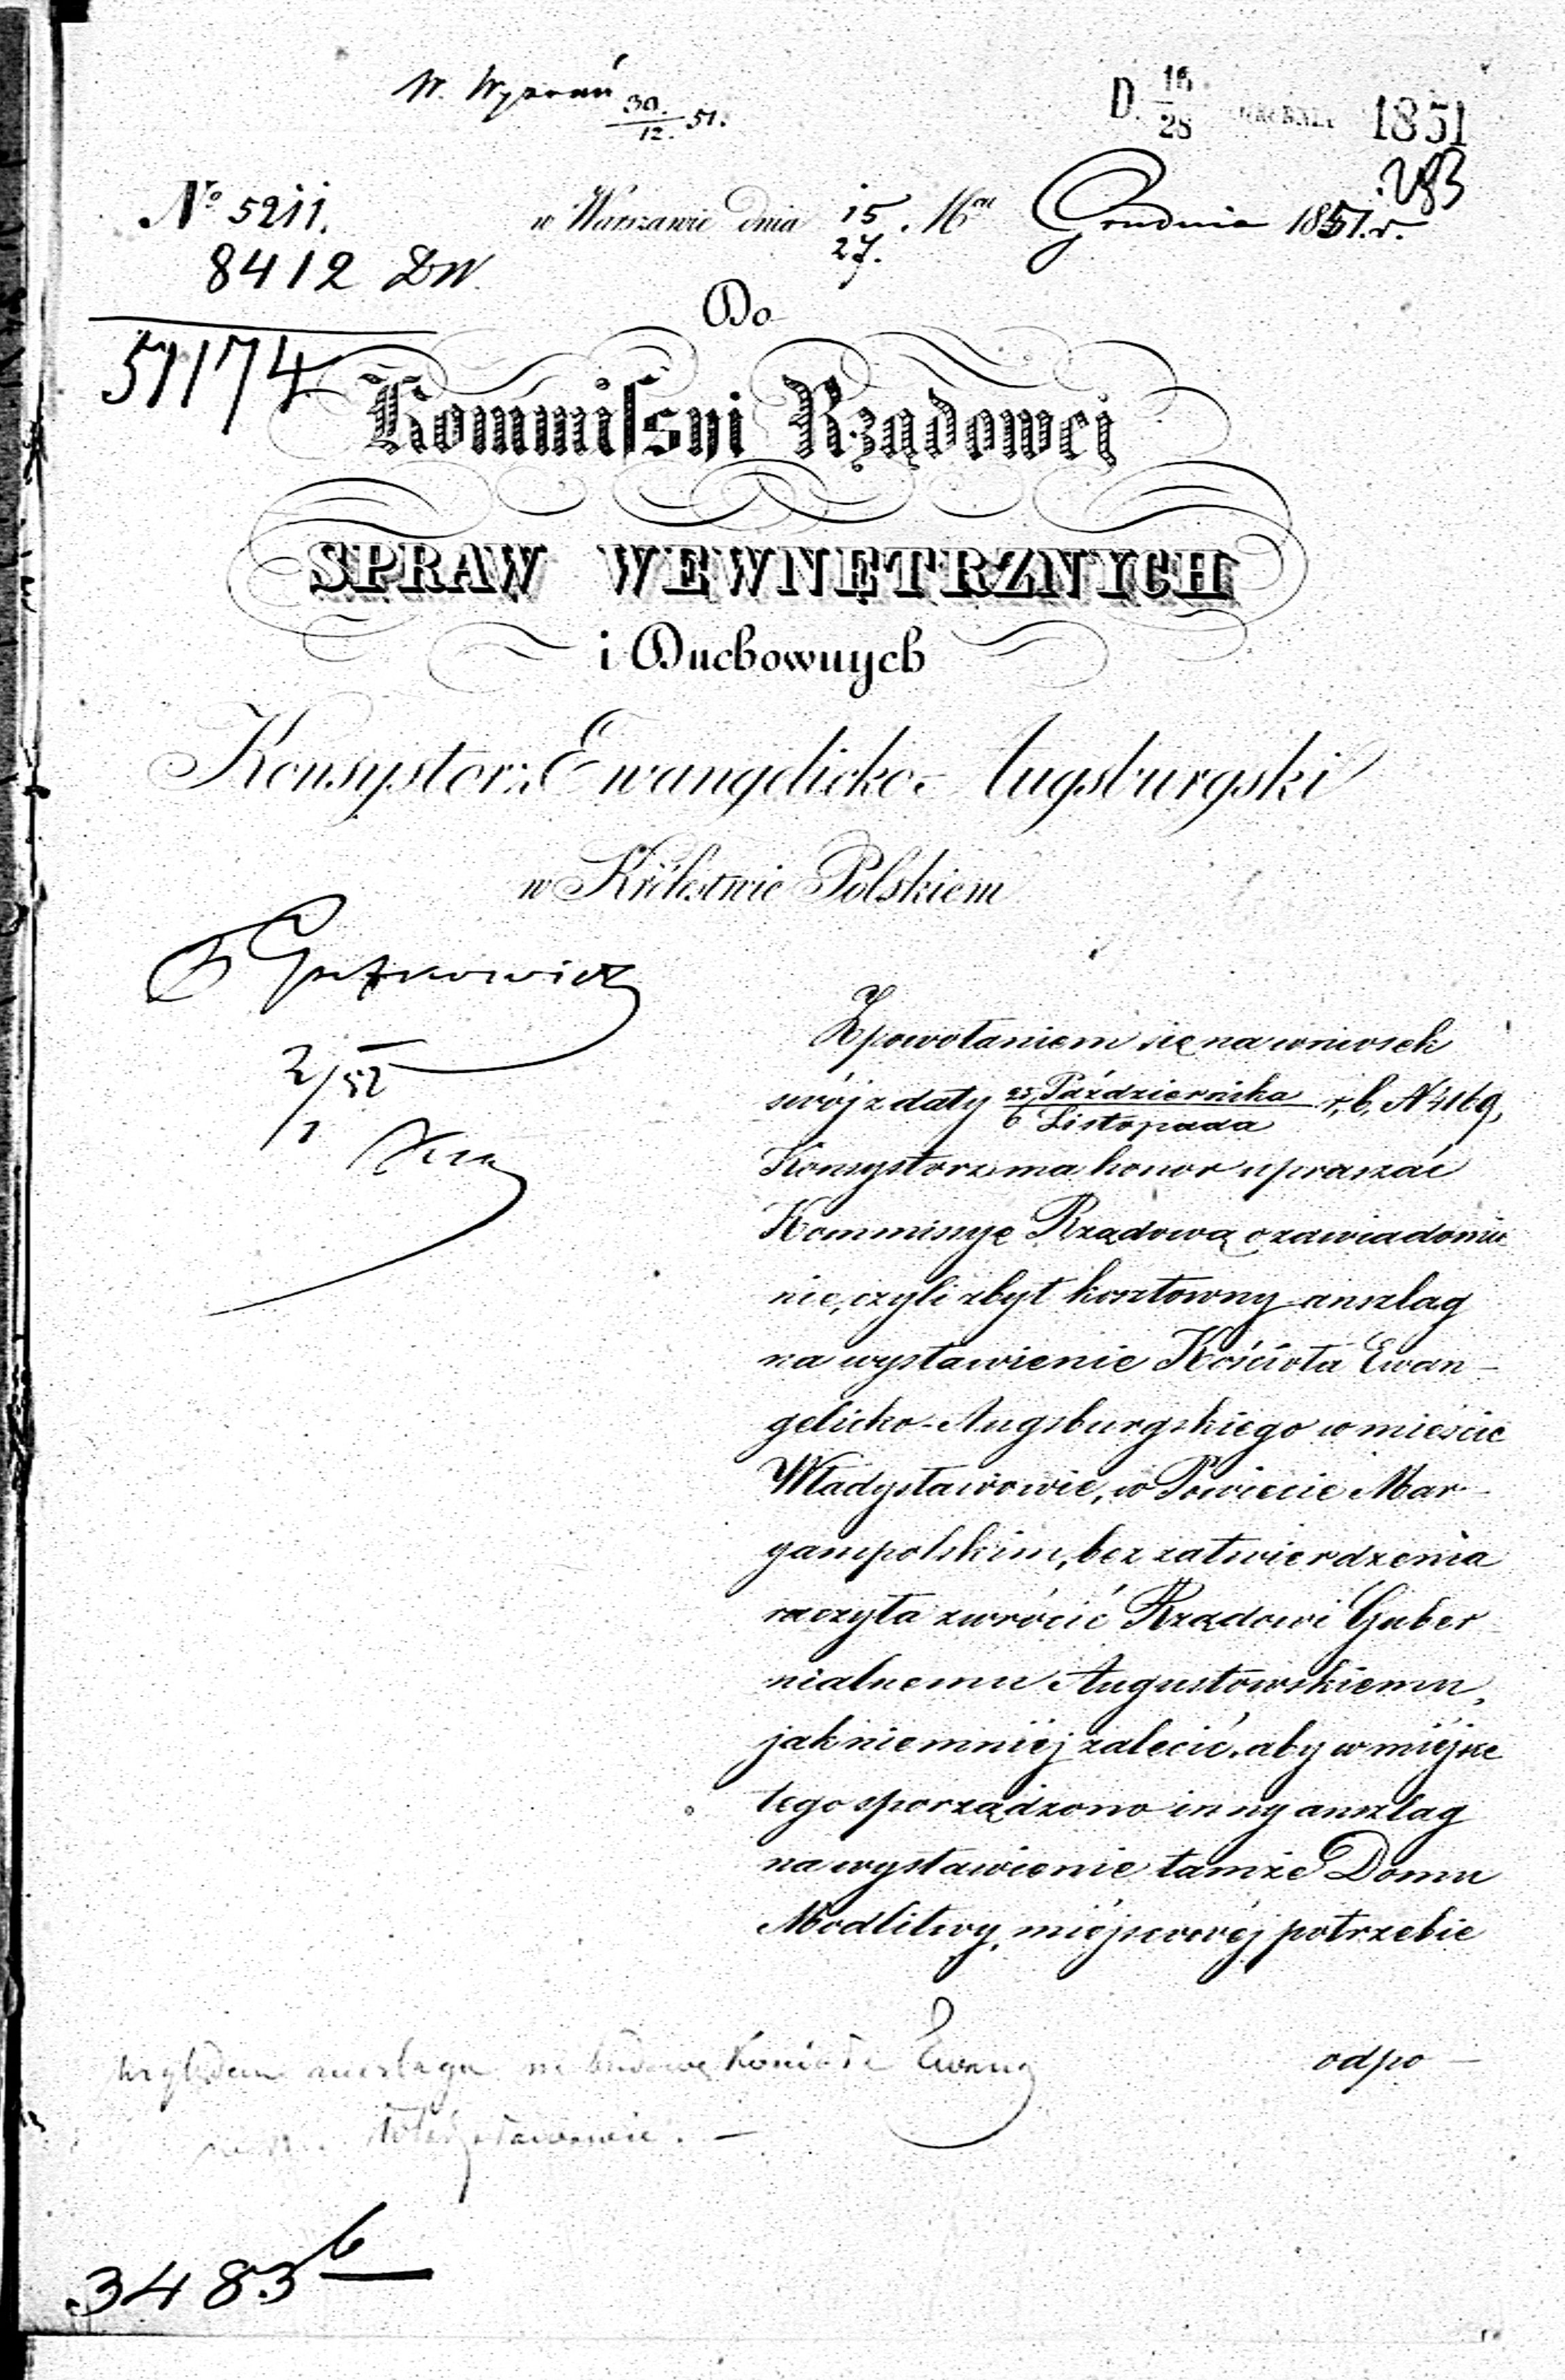 W. Wyznań 30./12. 51.
D. 16/28 1851
283
№ 5211. w Warszawie dnia 15/27. Mca Grudnia 1851. r.
8412 DW.
51174
Do
Kommissyi Rządowej
SPRAW WEWNĘTRZNYCH
i Duchownych
Konsystorz Ewangelicko-Augsburgski
w Królestwie Polskiem
2/1 52
Z powołaniem się na wniosek
swój z daty 25 Października/6 Listopada r. b. N 4169,
Konsystorz ma honor upraszać
Kommissyę Rządową o zawiadomie
nie, czyli zbyt kosztowny anszlag
na wystawienie Kościoła Ewan-
gelicko-Augsburgskiego w mieście
Władysławowie, w Powiecie Mar-
yampolskim, bez zatwierdzenia
raczyła zwrócić Rządowi Guber
nialnemu Augustowskiemu,
jak niemniéj zalecić, aby w miéjsce
tego sporządzono inny anszlag
na wystawienie tamże Domu
Modlitwy, miéjscowéj potrzebie
odpo-
względem anszlagu na budowę Kościoła Ewang
Władysławowie. -
3483 b